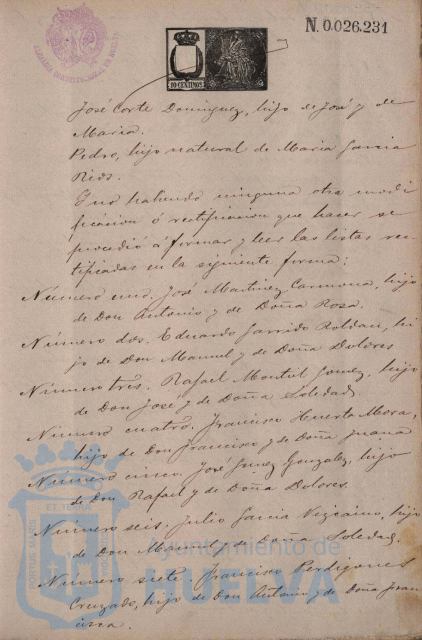 N. 0.026.231
10 CENTIMOS
José Corte Dominguez, hijo de José y de
Maria.
Pedro, hijo natural de Maria Garcia
Rios.
Y no habiendo ninguna otra modi
ficacion ó rectificacion que hacer se
procedió á formar y leer las listas rec-
tificadas en la siguiente forma:
Número uno. José Martinez Carmona, hijo
de Don Antonio y de Doña Rosa.
Número dos. Eduardo Garrido Roldan, hi-
jo de Don Manuel y de Doña Dolores
Número tres. Rafael Montiel Gomez, hijo
de Don José y de Doña Soledad.
Número cuatro. Francisco Huerta Mora,
hijo de Don Francisco y de Doña Juana
Número cinco. José Gonzalez, hijo
de Don Rafael y de Doña Dolores.
Número seis. Julio Garcia Vizcaino, hijo
de Don Manuel y de Doña Soledad.
Número siete. Francisco Perdigones
Cruzado, hijo de Don Antonio y de Doña Fran
cisca.
Ayuntamiento de
HUELVA